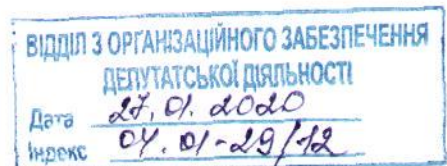 ВІДДІЛ З ОРГАНІЗАЦІЙНОГО ЗАБЕЗПЕЧЕННЯ
ДЕПУТАТСЬКОЇ ДІЯЛЬНОСТІ
Дата 27.01.2020
Індекс 04.01-29/12